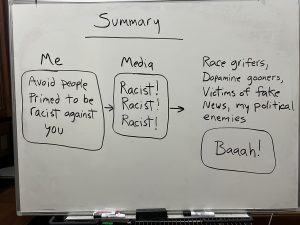 Summary
Me
Avoid people
Primed to be
racist against
you
Media
Racist!
Racist!
Racist!
Race grifers,
Dopamine gooners,
Victims of fake
News, my political
enemies
Baaah!